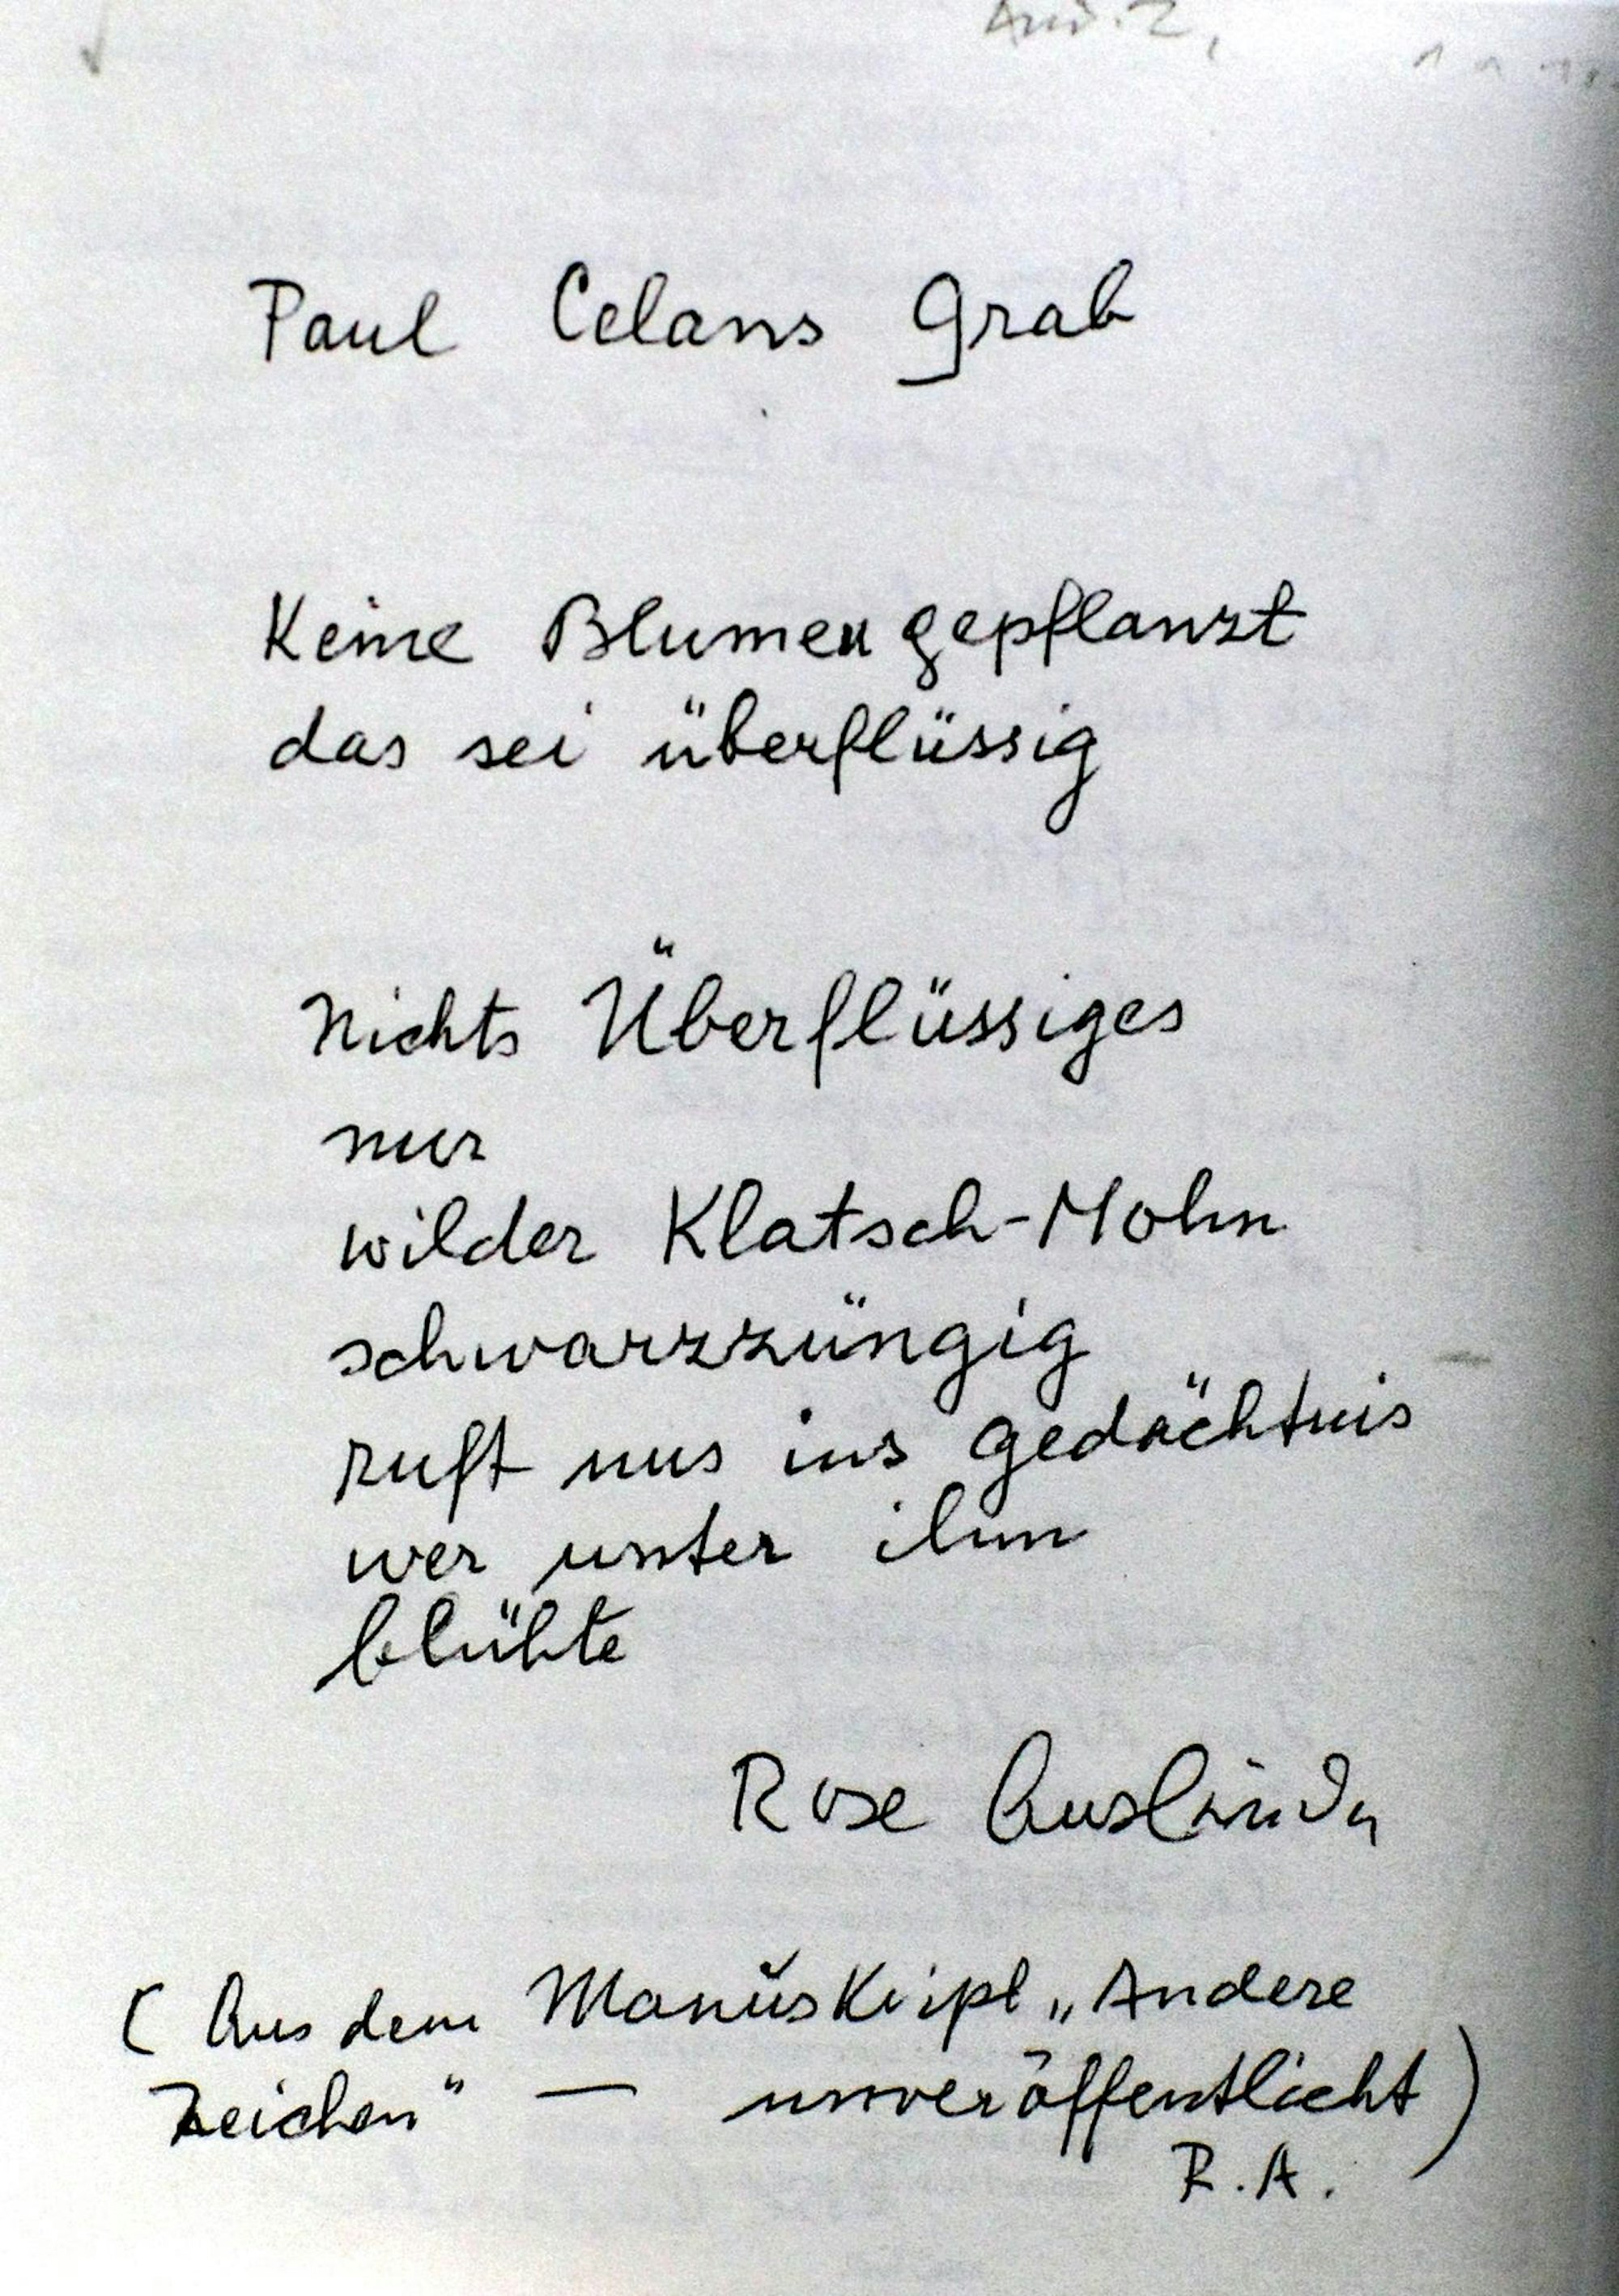 Paul Celans Grab
Keine Blumen gepflanzt
das sei überflüssig
Nichts Überflüssiges
nur
wilder Klatsch-Mohn
schwarzzüngig
ruft uns ins Gedächtnis
wer unter ihm
blühte
Rose Ausländer
(Aus dem Manuskript „Andere
Zeichen" — unveröffentlicht)
R.A.